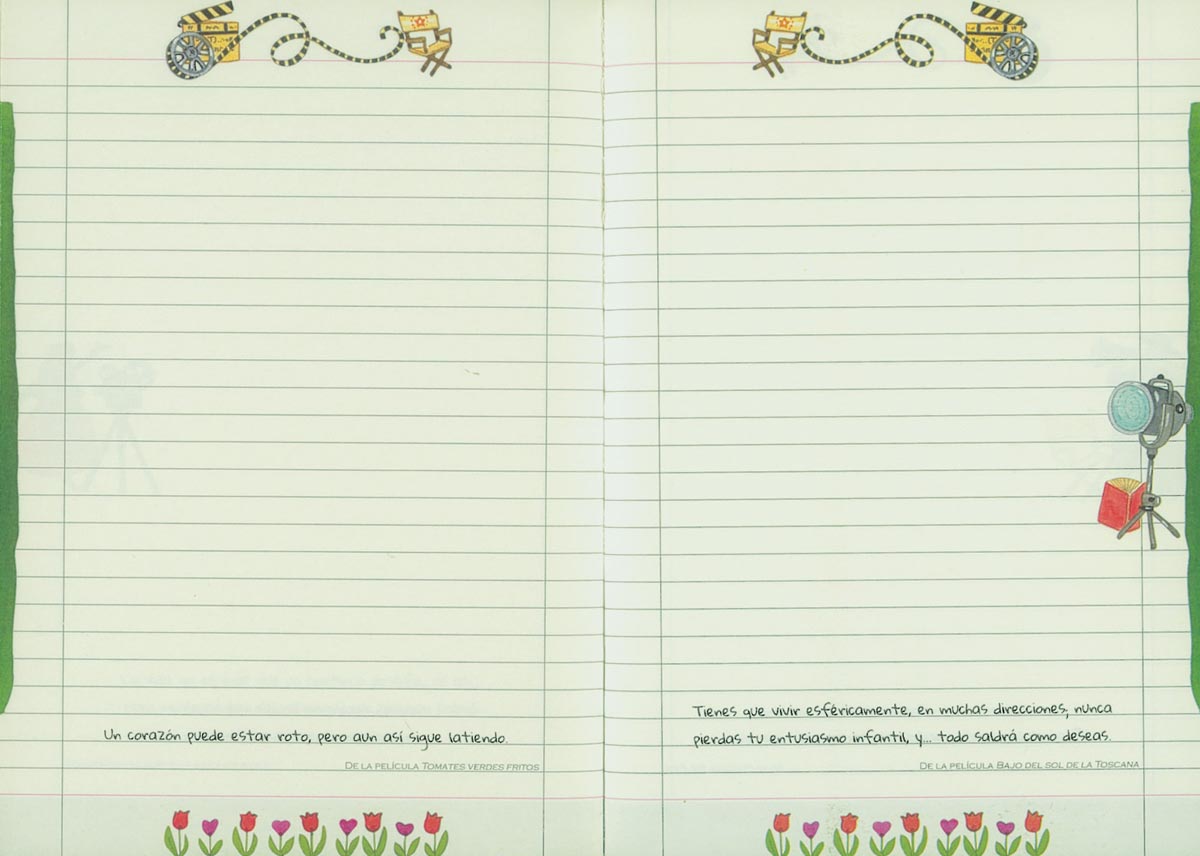 Un corazón puede estar roto, pero aun así sigue latiendo.
De la película Tomates verdes fritos
Tienes que vivir esféricamente, en muchas direcciones; nunca
pierdas tu entusiasmo infantil, y... todo saldrá como deseas.
De la película Bajo del sol de la Toscana